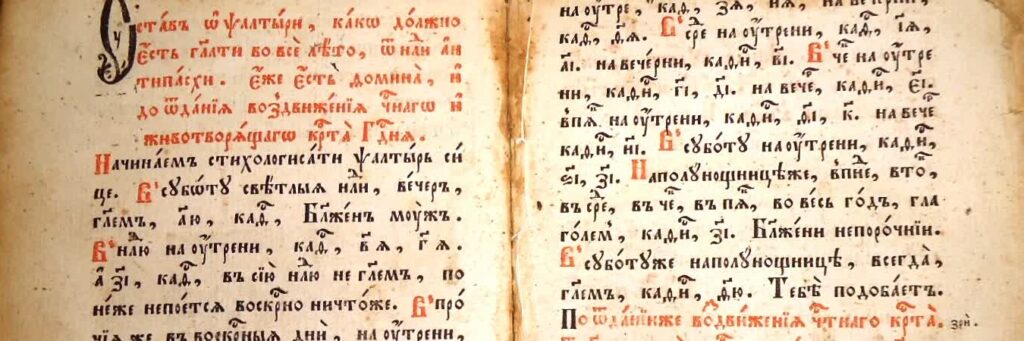 Уставъ ѿ ѱалтыри, какѡ до́лжно
є҆́сть гл҃ати во всѐ лѣ́то, ѿ нл҃и а҆н
типа́схи. є҆́же є҆́сть ѳомина̀, и҆
до ѿда́нїѧ воздви́женїѧ ч҃тнагѡ и҆
животворѧ́щагѡ кр҃та̀ гд҃нѧ.
Начина́емъ стихологиса́ти ѱалты́рь си́
це. В' субѡ́ту свѣ́тлыѧ нл҃и, ве́черъ,
гл҃емъ, а҃ю, каѳ, Бл҃же́нъ мꙋ́жъ.
В' нл҃ю на ᲂу҆́трени, каѳ, в҃ѧ, г҃ѧ.
а҆ з҃і, каѳ, въ сїю̀ нл҃ю не гл҃емъ, по
не́же непое́тсѧ воскр҃но ничто́же. В' про́
чїѧ же въ воскр҃ныѧ дн҃и, на ᲂу҆́трени,
на ᲂу҆́тре, каѳ, з҃ѧ, и҃ѧ, на вече́рни,
каѳ, ѳ҃ѧ. В' сре на ᲂу҆́трени, каѳ, і҃ѧ,
а҃і. на вече́рни, каѳи, в҃і. В' че на ᲂу҆́тре
ни, каѳи, г҃і, д҃і. на вече, каѳи, є҃і.
в'пѧ на ᲂу҆́трени, каѳи, ѳ҃і, к҃. на вече
каѳи, и҃і. В' субо́ту на ᲂу҆́трени, каѳи,
ѕ҃і, з҃і. На полу́нощницѣже, в'пне, вто,
въ сре, въ че, въ пѧ, во ве́сь го́дъ, гла
го́лем, каѳи, з҃і. Бл҃же́ни непоро́чнїи.
В' субо́туже на полу́нощницѣ, всегда̀,
гл҃емъ, каѳи, ѳ҃ю. Тебѣ̀ подоба́етъ.
По ѿда́нїиже воздви́женїѧ ч҃тна́го кр҃та̀. зри.